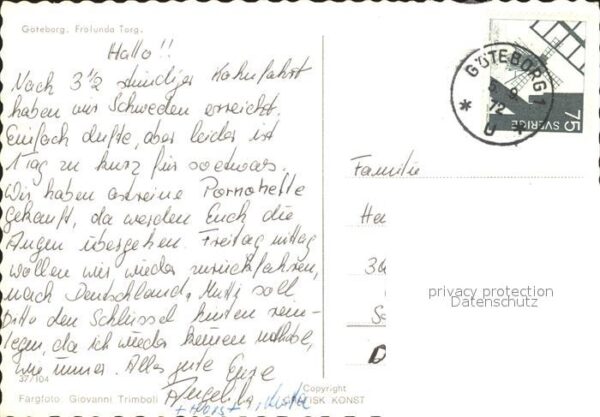 Göteborg. Frölunda Torg.
Hallo!!
Nach 3 1/2 stündiger Kahnfahrt
haben wir Schweden erreicht.
Einfach dufte, aber leider ist
1 Tag zu kurz für soetwas.
Wir haben astreine Pornohefte
gekauft, da werden Euch die
Augen übergehen. Freitag mittag
wollen wir wieder zurückfahren,
nach Deutschland, Mutti soll
bitte den Schlüssel hinten rein-
legen, da ich wieder keinen mithabe,
wie immer. Alles gute Eure
Angelika
+ Horst
37/104
Fargfoto: Giovanni Trimboli
Copyright
GRAFISK KONST
GÖTEBORG 1
5. 9.
72
75 SVERIGE
Familie
He
36
privacy protection
Datenschutz
D